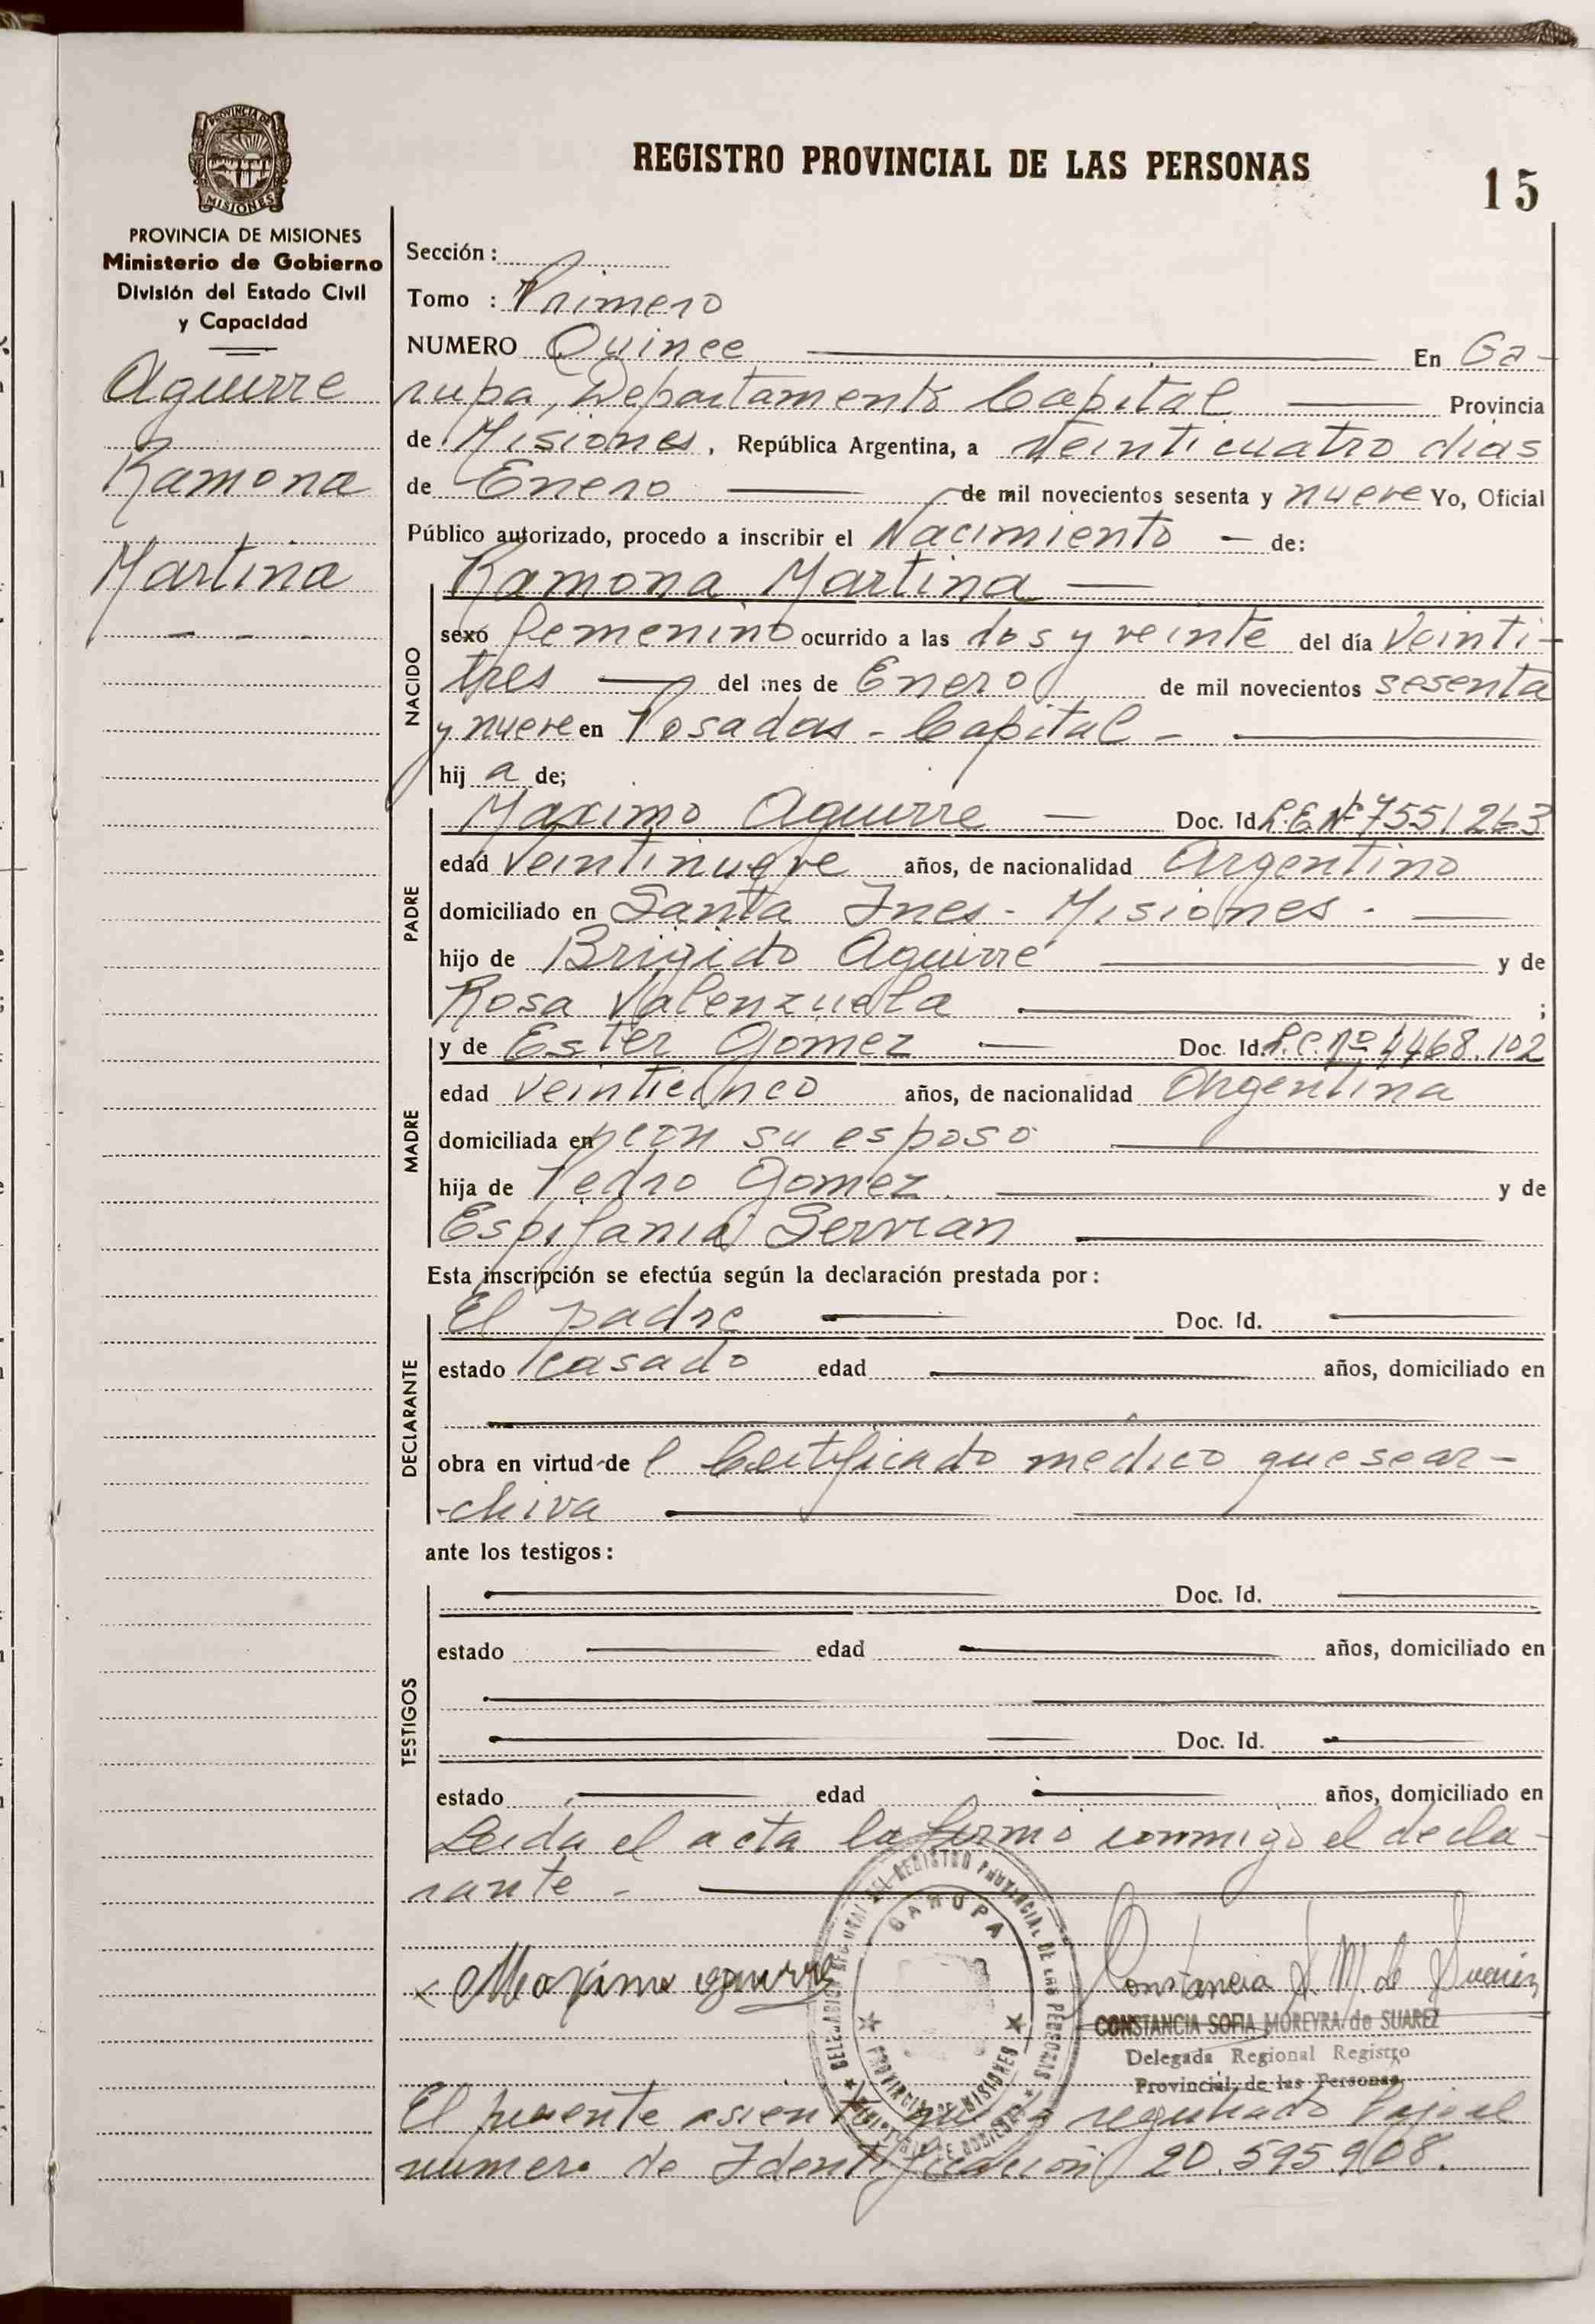 PROVINCIA DE
MISIONES
REGISTRO PROVINCIAL DE LAS PERSONAS
15
PROVINCIA DE MISIONES
Ministerio de Gobierno
División del Estado Civil
y Capacidad
Aguirre
Ramona
Martina
Sección:
Tomo : Primero
NUMERO Quince En Ga-
rupa, Departamento Capital Provincia
de Misiones, República Argentina, a veinticuatro dias
de Enero de mil novecientos sesenta y nueve Yo, Oficial
Público autorizado, procedo a inscribir el Nacimiento - de:
NACIDO
Ramona Martina
sexo femenino ocurrido a las dos y veinte del día Veinti-
tres del mes de Enero de mil novecientos sesenta
y nueve en Posadas - Capital -
hij a de;
PADRE
Maximo Aguirre Doc. Id. L.E. Nº 7551263
edad veintinueve años, de nacionalidad Argentino
domiciliado en Santa Ines - Misiones -
hijo de Brigido Aguirre y de
Rosa Valenzuela ;
MADRE
y de Ester Gomez Doc. Id. L.C. nº 4468.102
edad veinticinco años, de nacionalidad Argentina
domiciliada en con su esposo
hija de Pedro Gomez y de
Espifania Servian
Esta inscripción se efectúa según la declaración prestada por:
DECLARANTE
El padre Doc. Id.
estado casado edad años, domiciliado en
obra en virtud de l Certificado medico que se ar-
-chiva
ante los testigos:
TESTIGOS
Doc. Id.
estado edad años, domiciliado en
Doc. Id.
estado edad años, domiciliado en
Leida el acta la firmo conmigo el decla-
rante -
Maximo aguirre
Constancia S. M. de Suarez
CONSTANCIA SOFIA MOREYRA de SUAREZ
Delegada Regional Registro
Provincial de las Personas
DEL REGISTRO PROVINCIAL DE LAS PERSONAS
GARUPA
PROVINCIA DE MISIONES
El presente asiento queda registrado bajo el
numero de Identificación 20.595.908.